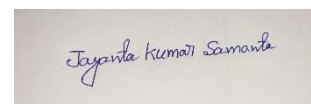 Jayanta Kumar Samanta